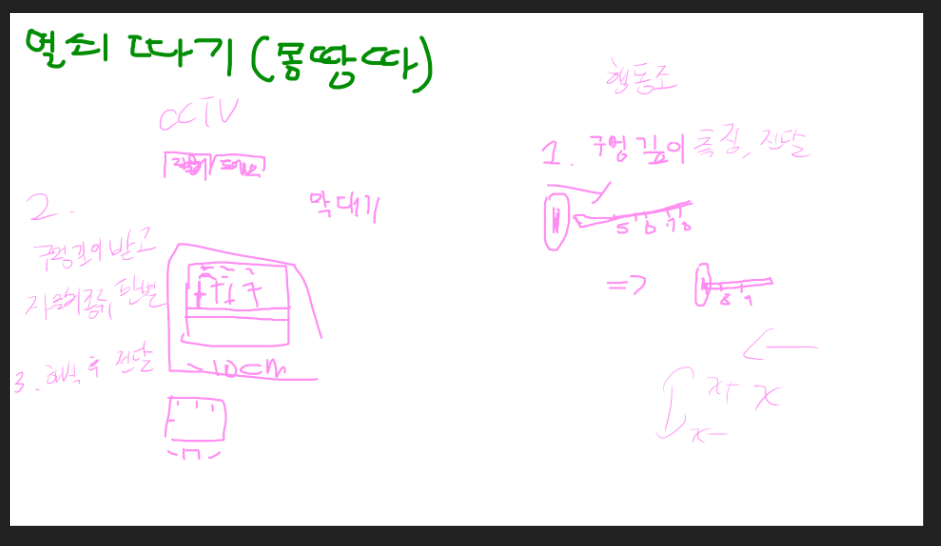 열쇠 따기 (몽땅따)
CCTV
막대기
2.
구멍깊이 받고
자물쇠종류 판별
3. 해석 후 전달
10cm
행동조
1. 구멍 깊이 측정, 전달
5 6 7 8
=>
8 9
x+ x
x-